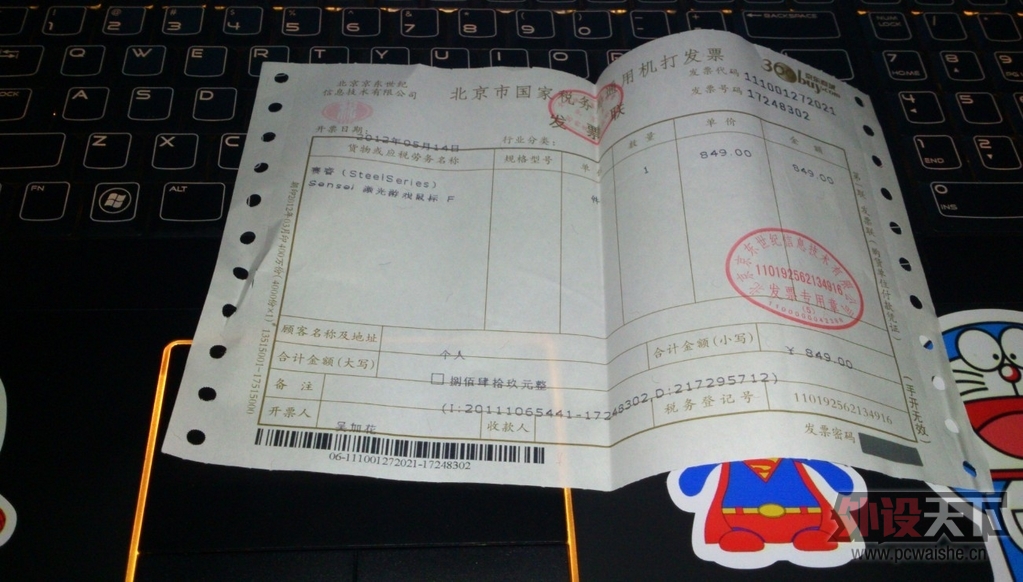 北京京东世纪
信息技术有限公司
北京市国家税务局通用机打发票
发票联
360buy.com
发票代码 111001272021
发票号码 17248302
开票日期
2012年05月14日
行业分类:
货物或应税劳务名称
规格型号
单
数量
单价
金额
赛睿 (SteelSeries)
Sensei 激光游戏鼠标 F
件
1
849.00
849.00
110192562134916
发票专用章
顾客名称及地址
个人
合计金额(大写)
捌佰肆拾玖元整
合计金额(小写)
¥ 849.00
备注
(I:20111065441-17248302,D:217295712)
开票人
吴如花
收款人
税务登记号
110192562134916
发票密码
(手开无效)
06-111001272021-17248302
BACKSPACE
NUM LOCK
Q
W
E
R
T
Y
U
I
S
D
Z
X
ALT
7 HOME
8
4
5
1 END
2
0 INS
外设天下
www.pcwaishe.cn